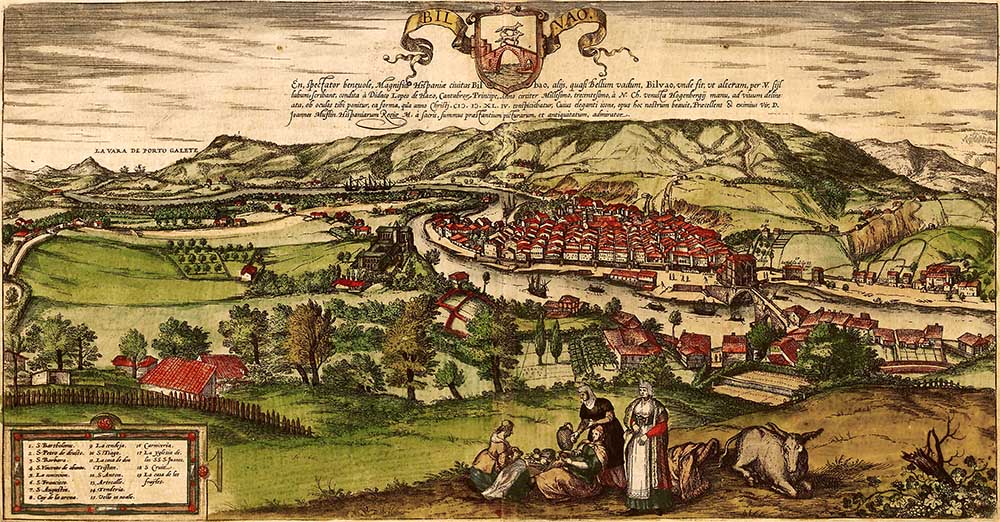 BILVAO.
En, spectator beneuole, Magnifica Hispaniæ ciuitas Bilbao, alijs, quasi Bellum vadum, Bilvao, vnde fit, vt alteram, per V.
scribant, condita à Didaco Lopes de Haro, Cantabrorum Principe, Anno circiter Millesimo, trecentesimo, à N. Ch. Hogenbergij manu, ad viuum deline
ata, ob oculos tibi ponitur, ea forma, qua anno Christj. XL. IV. conspiciebatur, Cuius eleganti icone, opus hoc nostrum beauit, Præcellens & eximius Vir, D.
Joannes Muflin Hispaniarum Regiæ M. à sacris, summus præstantium picturarum, et antiquitatum, admirator.
LA VARA DE PORTO GALETE
1. S. Bartholome.
2. S. Petro de
3. S. Barbara.
4. S. Vincente de
5. La
6. S. Francisco.
7. S. Augustin.
8. Cay de la arena.
9. La sendeja.
10. S. Tiago.
11. La casa de don
Tristan.
12. S. Anton.
13. Artecalle.
14. Tenderia.
15.
16. Carniceria.
17. La yglesia de
los SS. S. Juanes.
18. S. Cruz.
19. La casa de los